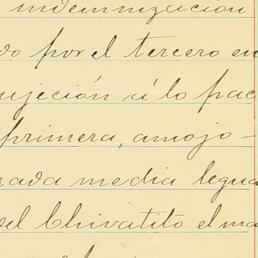 indemnización
do por el tercero en
ujeción á lo pac
primera, amojo-
rada media legua
del Chivatito el ma